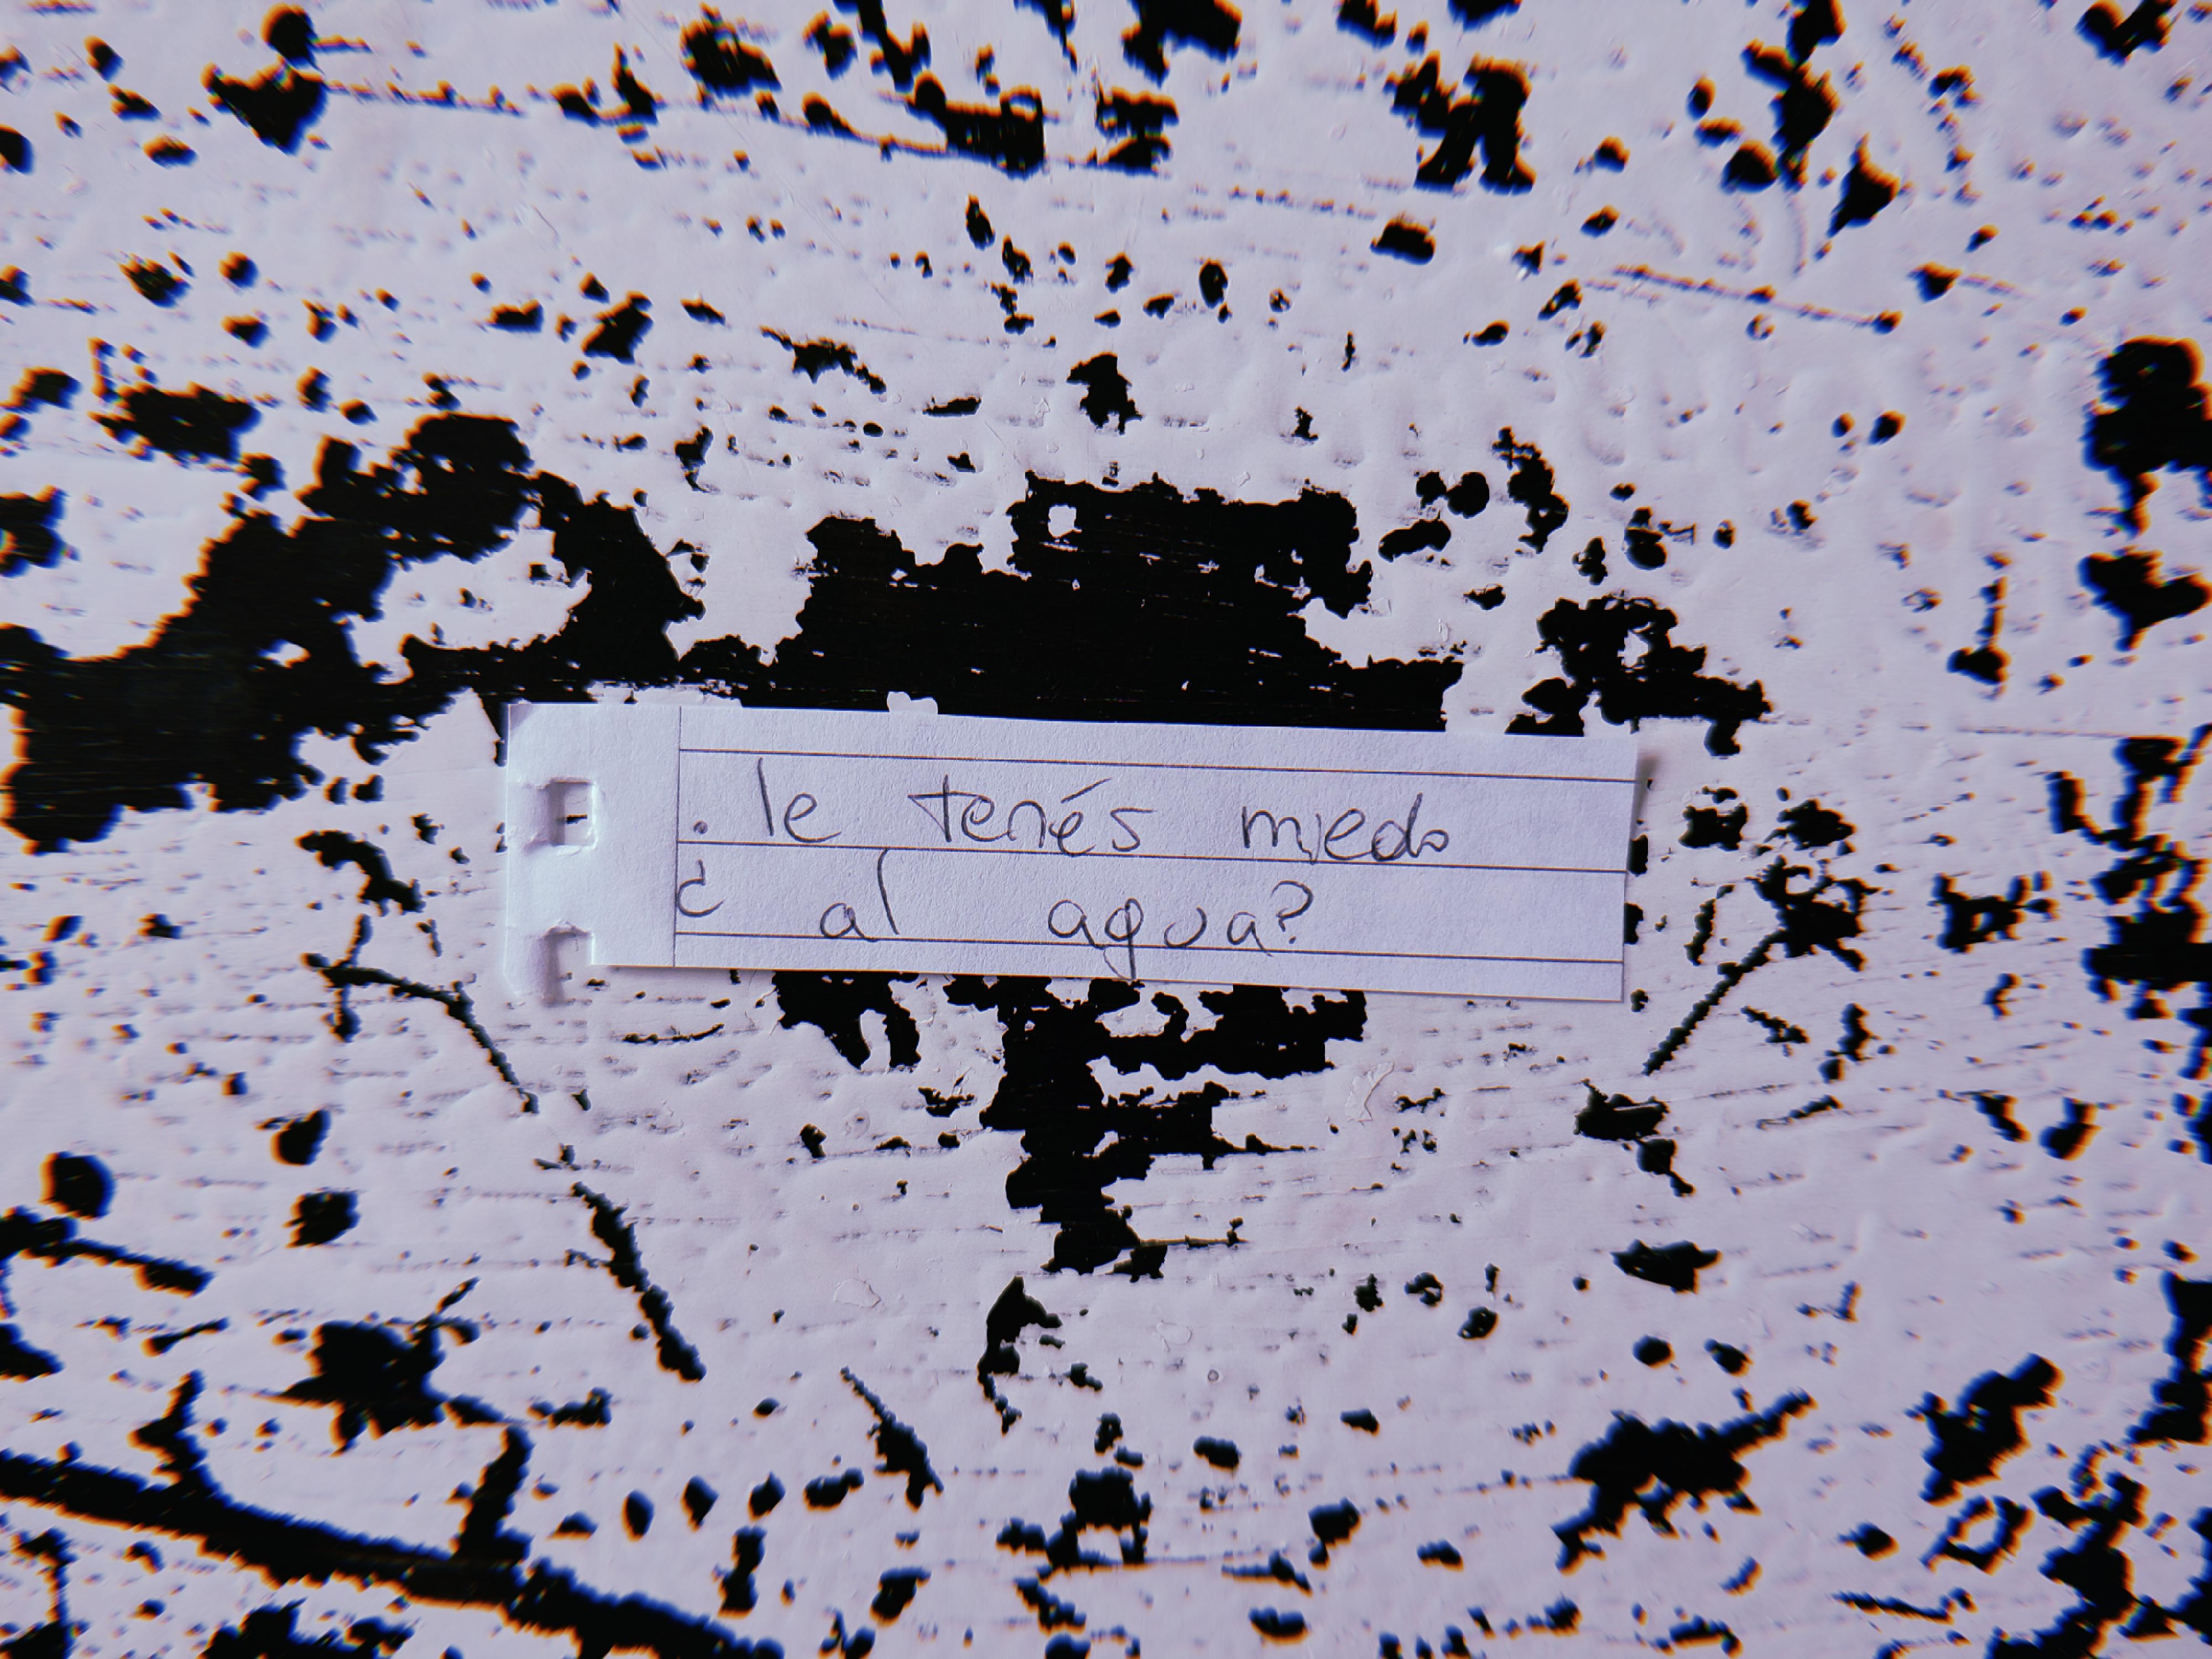 ¿le tenés miedo
al agua?